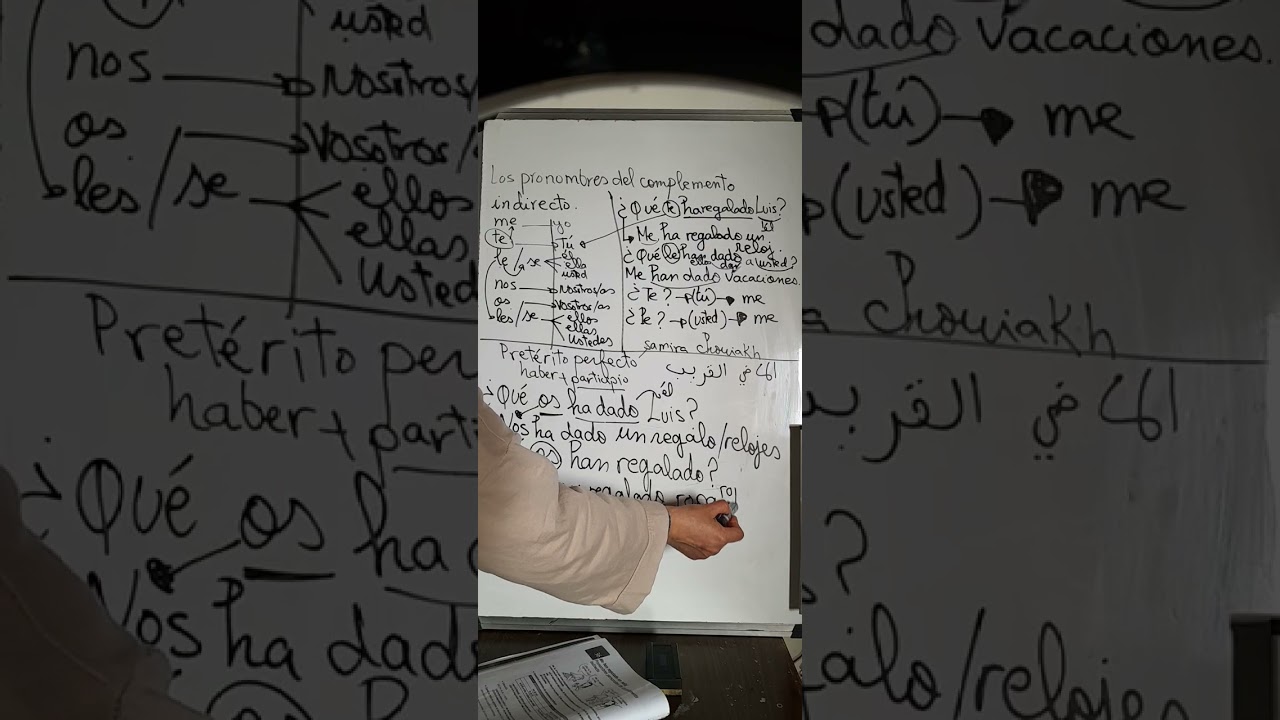 Los pronombres del complemento
indirecto.
me yo
te Tú
le/se él
ella
usted
nos Nosotros/as
os Vosotros/as
les/se ellos
ellas
Ustedes
¿Qué te ha regalado Luis?
él
Me ha regalado un
reloj.
¿Qué le han dado a usted?
Me han dado vacaciones.
¿Te? (tú) me
¿Le? (usted) me
samira Chouiakh
Pretérito perfecto
haber + participio
الماضي القريب
él
¿Qué os ha dado Luis?
Nos ha dado un regálo/relojes
os han regalado?
regalado ropa